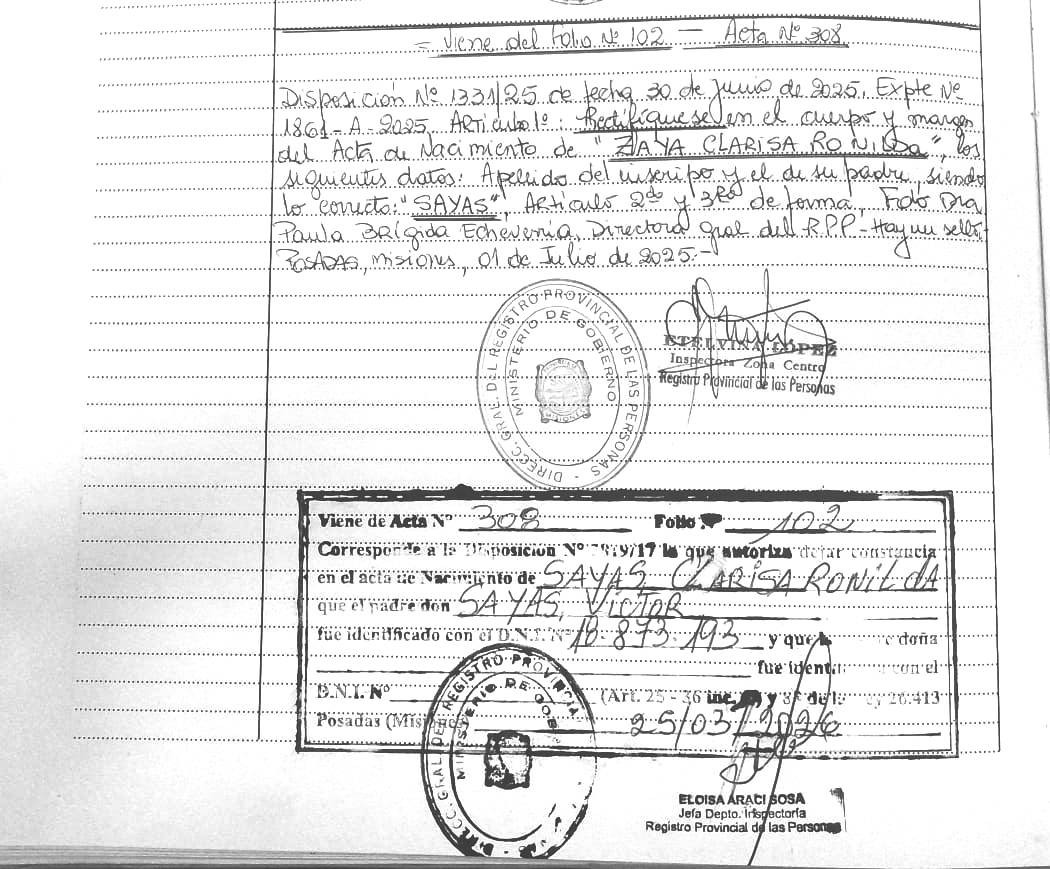 = Viene del Folio Nº 102 — Acta Nº 308
Disposición Nº 1331/25 de fecha 30 de Junio de 2025, Expte Nº
1861-A-2025, Artículo 1º: Rectifíquese en el cuerpo y margen
del Acta de Nacimiento de "ZAYA CLARISA RONILDA", los
siguientes datos: Apellido del inscripto y el de su padre, siendo
lo correcto: "SAYAS", Artículo 2do y 3Ro de forma, Fdo Dra
Paula Brígida Echeverría, Directora Gral del R.P.P - Hay un sello.
POSADAS, Misiones, 01 de Julio de 2025.-
DIRECC. GRAL. DEL REGISTRO PROVINCIAL DE LAS PERSONAS -
MINISTERIO DE GOBIERNO
MISIONES
ETELVINA LOPEZ
Inspectora Zona Centro
Registro Provincial de las Personas
Viene de Acta Nº 308 Folio Nº 102
Corresponde a la Disposición Nº /17 la que autoriza dejar constancia
en el acta de Nacimiento de SAYAS, CLARISA RONILDA
que el padre don SAYAS, VICTOR
fue identificado con el D.N.I. Nº 18.873.193 y que doña
fue ident. con el
D.N.I. Nº (Art. 25 - 36 inc. y 8 de la ey 26.413
Posadas (Misiones 25/03/2026
DIRECC. GRAL. DEL REGISTRO PROVINCIA
MINISTERIO DE GOB
ELOISA ARACI SOSA
Jefa Depto. Inspectoría
Registro Provincial de las Personas